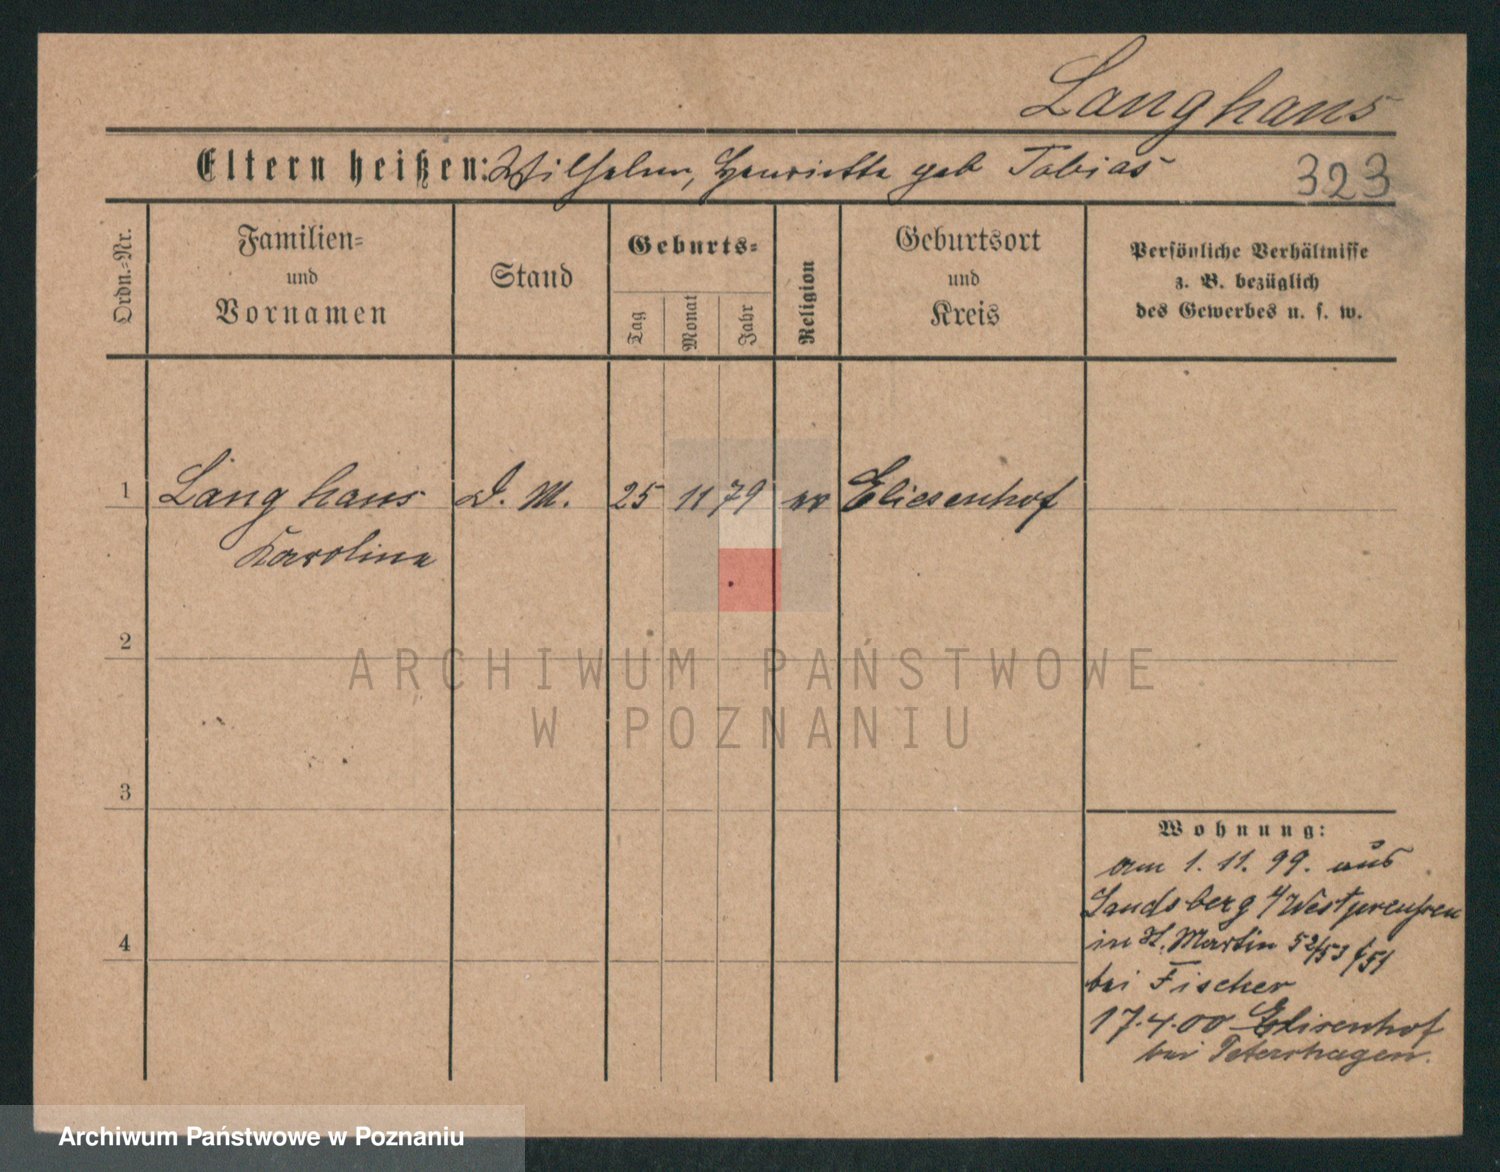 Langhans
Eltern heißen: Wilhelm, Henriette geb Tobias
323
Ordn.-Nr.
Familien-
und
Vornamen
Stand
Geburts-
Tag
Monat
Jahr
Religion
Geburtsort
und
Kreis
Persönliche Verhältnisse
z. B. bezüglich
des Gewerbes u. s. w.
1 Langhans D. M. 25 11 79 ev Eliesenhof
Karoline
2
ARCHIWUM PAŃSTWOWE
W POZNANIU
3
Wohnung:
am 1. 11. 99. aus
Landsberg Westpreußen
in St. Martin 52/53
4
bei Fischer
17.4.00 Elisenhof
bei Petershagen.
Archiwum Państwowe w Poznaniu